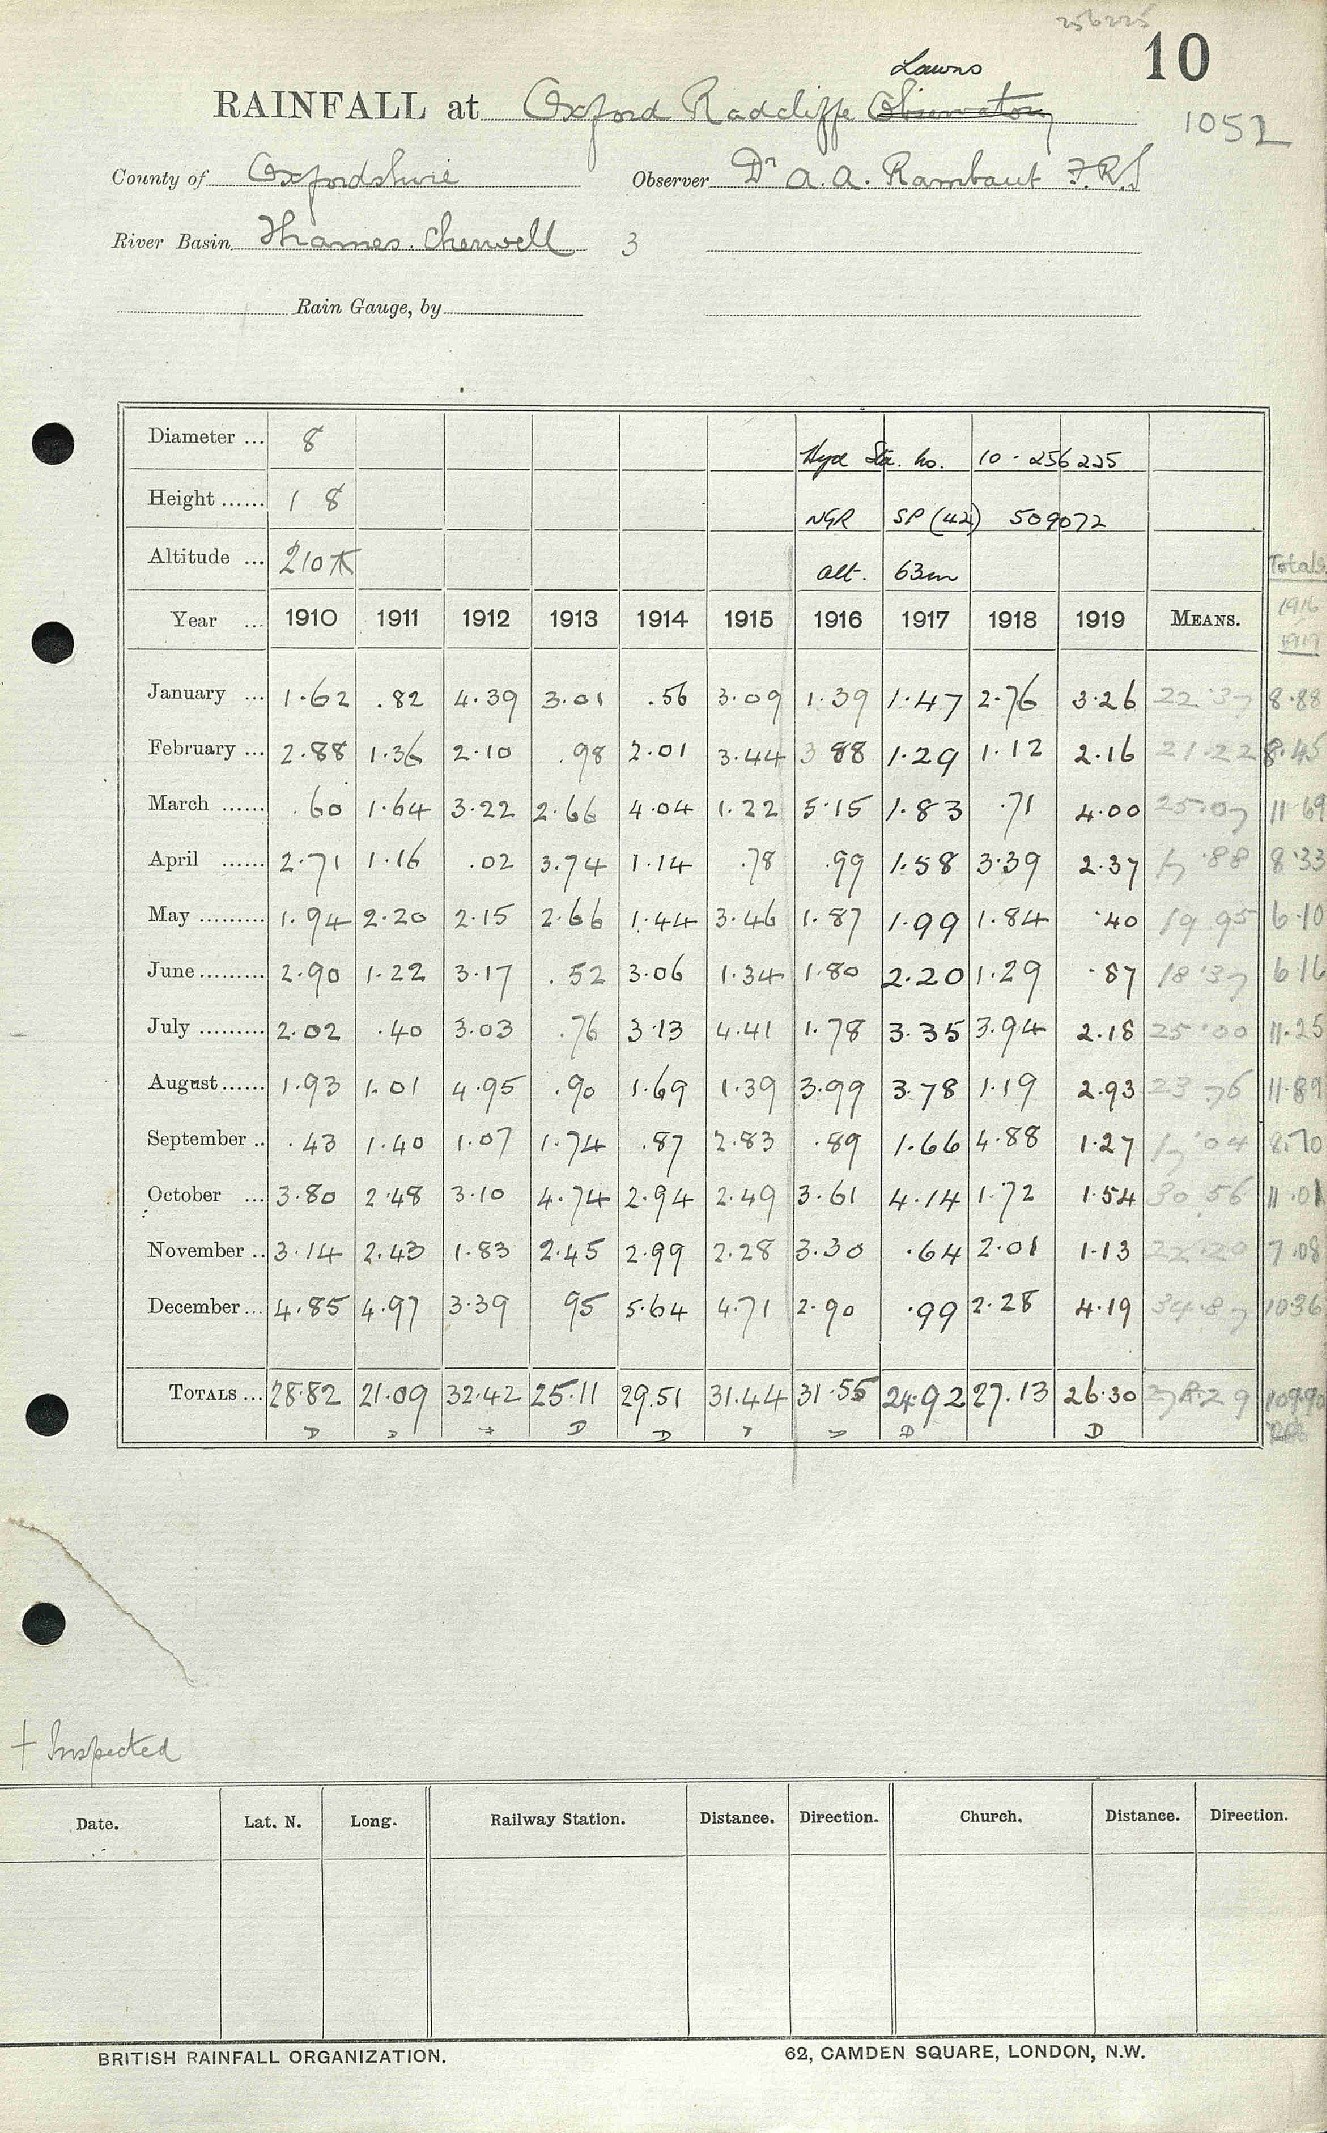 256225
10
Lawns
RAINFALL at Oxford Radcliffe Observatory
1052
County of Oxfordshire Observer Dr A. A. Rambaut F.R.S
River Basin Thames. Cherwell 3
Rain Gauge, by
Diameter ... 8 Hyd Sta. No. 10 - 256225
Height ...... 1 8 NGR SP (42) 509072
Altitude ... 210ft alt. 63m Totals
Year ... 1910 1911 1912 1913 1914 1915 1916 1917 1918 1919 MEANS. 1916 1919
January ... 1.62 .82 4.39 3.01 .56 3.09 1.39 1.47 2.76 3.26 22.37 8.88
February ... 2.88 1.36 2.10 .98 2.01 3.44 3 88 1.29 1.12 2.16 21.22 8.45
March ...... .60 1.64 3.22 2.66 4.04 1.22 5.15 1.83 .71 4.00 25.07 11.69
April ...... 2.71 1.16 .02 3.74 1.14 .78 .99 1.58 3.39 2.37 17.88 8.33
May ......... 1.94 2.20 2.15 2.66 1.44 3.46 1.87 1.99 1.84 .40 19 95 6.10
June ......... 2.90 1.22 3.17 .52 3.06 1.34 1.80 2.20 1.29 .87 18.37 6.16
July ......... 2.02 .40 3.03 .76 3.13 4.41 1.78 3.35 3.94 2.18 25.00 11.25
August ...... 1.93 1.01 4.95 .90 1.69 1.39 3.99 3.78 1.19 2.93 23 76 11.89
September .. .43 1.40 1.07 1.74 .87 2.83 .89 1.66 4.88 1.27 17.04 8.70
October ... 3.80 2.48 3.10 4.74 2.94 2.49 3.61 4.14 1.72 1.54 30.56 11.01
November .. 3.14 2.43 1.83 2.45 2.99 2.28 3.30 .64 2.01 1.13 22.20 7.08
December ... 4.85 4.97 3.39 95 5.64 4.71 2.90 .99 2.28 4.19 34.87 10 36
TOTALS ... 28.82 21.09 32.42 25.11 29.51 31.44 31.55 24.92 27.13 26.30 278.29 109.90
D D D D D
+ Inspected
Date. Lat. N. Long. Railway Station. Distance. Direction. Church. Distance. Direction.
BRITISH RAINFALL ORGANIZATION. 62, CAMDEN SQUARE, LONDON, N.W.